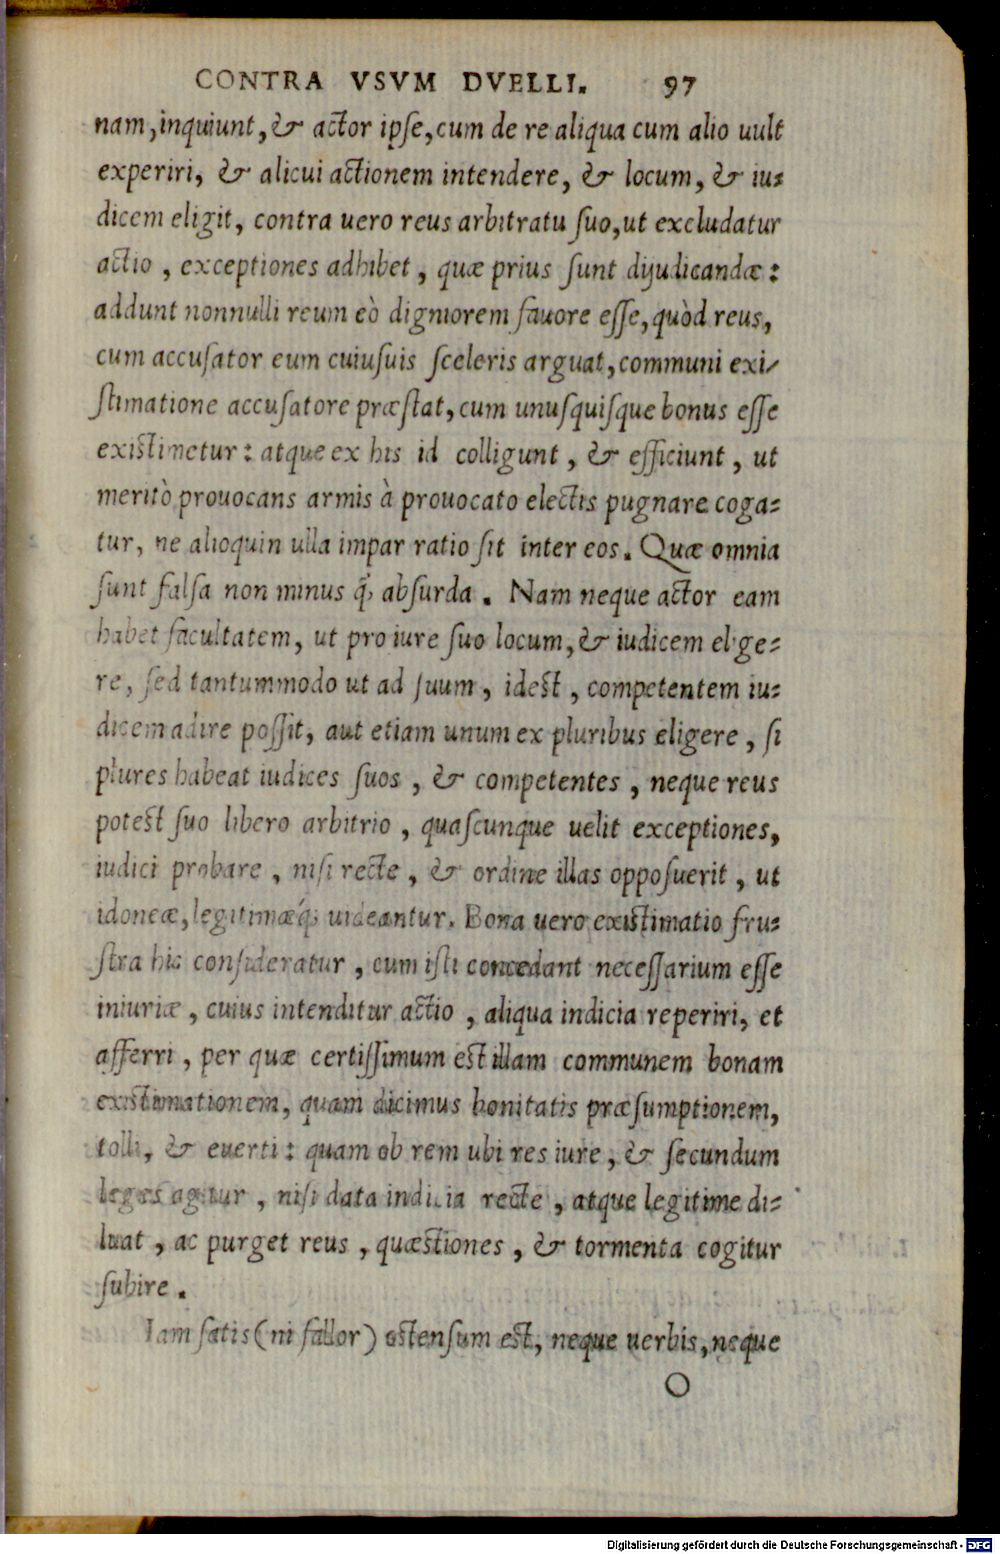 CONTRA VSVM DVELLI. 97
nam, inquiunt, & actor ipſe, cum de re aliqua cum alio uult
experiri, & alicui actionem intendere, & locum, & iu⸗
dicem eligit, contra uero reus arbitratu ſuo, ut excludatur
actio, exceptiones adhibet, quæ prius ſunt dijudicandæ:
addunt nonnulli reum eò digniorem fauore eſſe, quòd reus,
cum accuſator eum cuiuſuis ſceleris arguat, communi exi⸗
ſtimatione accuſatore præſtat, cum unuſquiſque bonus eſſe
exiſtimetur: atque ex his id colligunt, & efficiunt, ut
meritò prouocans armis à prouocato electis pugnare coga⸗
tur, ne alioquin ulla impar ratio ſit inter eos. Quæ omnia
ſunt falſa non minus q̃; abſurda. Nam neque actor eam
habet facultatem, ut pro iure ſuo locum, & iudicem elige⸗
re, ſed tantummodo ut ad ſuum, ideſt, competentem iu⸗
dicem adire poſſit, aut etiam unum ex pluribus eligere, ſi
plures habeat iudices ſuos, & competentes, neque reus
poteſt ſuo libero arbitrio, quaſcunque uelit exceptiones,
iudici probare, niſi recte, & ordine illas oppoſuerit, ut
idoneæ, legitimæq́; uideantur. Bona uero exiſtimatio fru⸗
ſtra hic conſideratur, cum iſti concedant neceſſarium eſſe
iniuriæ, cuius intenditur actio, aliqua indicia reperiri, et
afferri, per quæ certiſſimum eſt illam communem bonam
exiſtimationem, quam dicimus bonitatis præſumptionem,
tolli, & euerti: quam ob rem ubi res iure, & ſecundum
leges agitur, niſi data indicia recte, atque legitime di⸗
luat, ac purget reus, quæſtiones, & tormenta cogitur
ſubire.
Iam ſatis (ni fallor) oſtenſum eſt, neque uerbis, neque
O
Digitalisierung gefördert durch die Deutsche Forschungsgemeinschaft - DFG